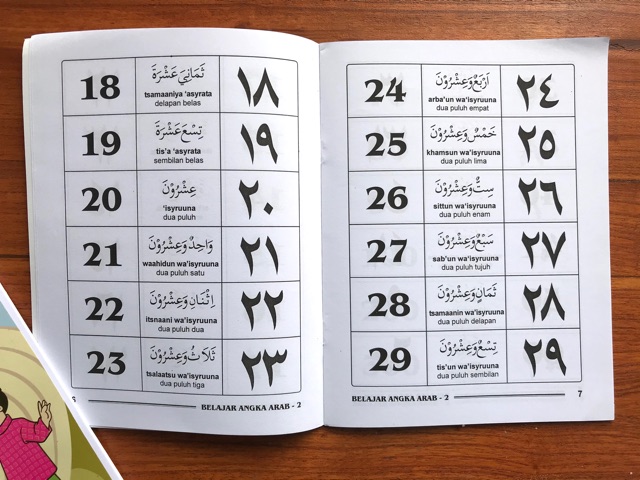 18
ثَمَانِيَ عَشْرَةَ
tsamaaniya 'asyrata
delapan belas
١٨
19
تِسْعَ عَشْرَةَ
tis'a 'asyrata
sembilan belas
١٩
20
عِشْرُوْنَ
'isyruuna
dua puluh
٢٠
21
وَاحِدٌ وَعِشْرُوْنَ
waahidun wa'isyruuna
dua puluh satu
٢١
22
اِثْنَانِ وَعِشْرُوْنَ
itsnaani wa'isyruuna
dua puluh dua
٢٢
23
ثَلَاثٌ وَعِشْرُوْنَ
tsalaatsu wa'isyruuna
dua puluh tiga
٢٣
6
BELAJAR ANGKA ARAB - 2
24
اَرْبَعٌ وَعِشْرُوْنَ
arba'un wa'isyruuna
dua puluh empat
٢٤
25
خَمْسٌ وَعِشْرُوْنَ
khamsun wa'isyruuna
dua puluh lima
٢٥
26
سِتٌّ وَعِشْرُوْنَ
sittun wa'isyruuna
dua puluh enam
٢٦
27
سَبْعٌ وَعِشْرُوْنَ
sab'un wa'isyruuna
dua puluh tujuh
٢٧
28
ثَمَانٍ وَعِشْرُوْنَ
tsamaanin wa'isyruuna
dua puluh delapan
٢٨
29
تِسْعٌ وَعِشْرُوْنَ
tis'un wa'isyruuna
dua puluh sembilan
٢٩
BELAJAR ANGKA ARAB - 2
7